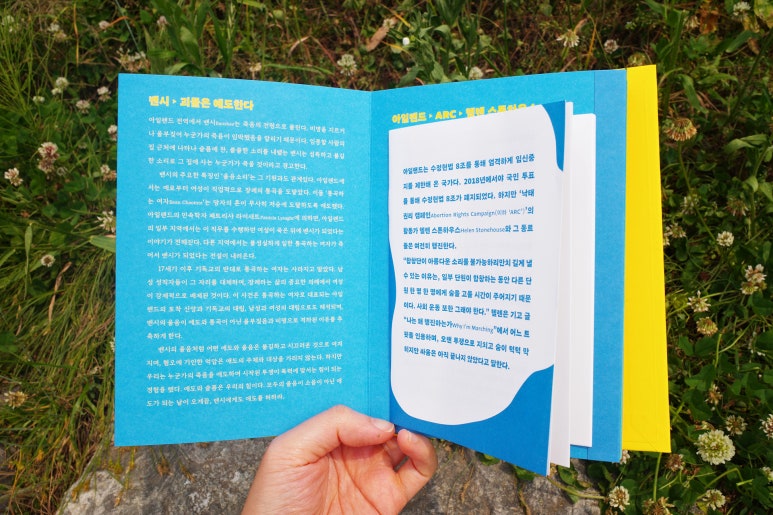 밴시 ▸ 괴물은 애도한다
아일랜드 전역에서 밴시Banshee는 죽음의 전령으로 통한다. 비명을 지르거
나 울부짖어 누군가의 죽음이 임박했음을 알리기 때문이다. 임종할 사람의
집 근처에 나타나 슬픔에 찬, 쓸쓸한 소리를 내뱉는 밴시는 섬뜩하고 불길
한 소리로 그 집에 사는 누군가가 죽을 것이라고 경고한다.
밴시의 주요한 특징인 '울음소리'는 그 기원과도 관계있다. 아일랜드에
서는 예로부터 여성이 직업적으로 장례의 통곡을 도맡았다. 이들 '통곡하
는 여자'는 망자의 혼이 무사히 저승에 도달하도록 애도했다.
아일랜드의 민속학자 패트리샤 라이세트Patricia Lysaght에 의하면, 아일랜드
의 일부 지역에서는 이 직무를 수행하던 여성이 죽은 뒤에 밴시가 되었다는
이야기가 전해진다. 다른 지역에서는 불성실하게 임한 통곡하는 여자가 죽
어서 밴시가 되었다는 전설이 내려온다.
17세기 이후 기독교의 반대로 통곡하는 여자는 사라지고 말았다. 남
성 성직자들이 그 자리를 대체하여, 장례라는 삶의 중요한 의례에서 여성
이 강제적으로 배제된 것이다. 이 사건은 통곡하는 여자로 대표되는 아일
랜드의 토착 신앙과 기독교의 대립, 남성과 여성의 대립으로도 해석되며,
밴시의 울음이 애도와 통곡이 아닌 울부짖음과 비명으로 격하된 이유를 추
측하게 한다.
밴시의 울음처럼 어떤 애도와 울음은 불길하고 시끄러운 것으로 여겨
지며, 혐오에 기인한 억압은 애도의 주체와 대상을 가리지 않는다. 하지만
우리는 누군가의 죽음을 애도하며 시작된 투쟁이 폭력에 맞서는 힘이 되는
경험을 했다. 애도와 슬픔은 우리의 힘이다. 모두의 울음이 소음이 아닌 애
도가 되는 날이 오게끔, 밴시에게도 애도를 허하라.
아일랜드 ▸ ARC ▸ 헬렌 스톤하우스
아일랜드는 수정헌법 8조를 통해 엄격하게 임신중
지를 제한해 온 국가다. 2018년에서야 국민 투표
를 통해 수정헌법 8조가 폐지되었다. 하지만 '낙태
권리 캠페인Abortion Rights Campaign(이하 'ARC')'의
활동가 헬렌 스톤하우스Helen Stonehouse와 그 동료
들은 여전히 행진한다.
"합창단이 아름다운 소리를 불가능하리만치 길게 낼
수 있는 이유는, 일부 단원이 합창하는 동안 다른 단
원 한 명 한 명에게 숨을 고를 시간이 주어지기 때문
이다. 사회 운동 또한 그래야 한다." 헬렌은 기고 글
"나는 왜 행진하는가Why I'm Marching"에서 어느 트
윗을 인용하며, 오랜 투쟁으로 지치고 숨이 턱턱 막
히지만 싸움은 아직 끝나지 않았다고 말한다.